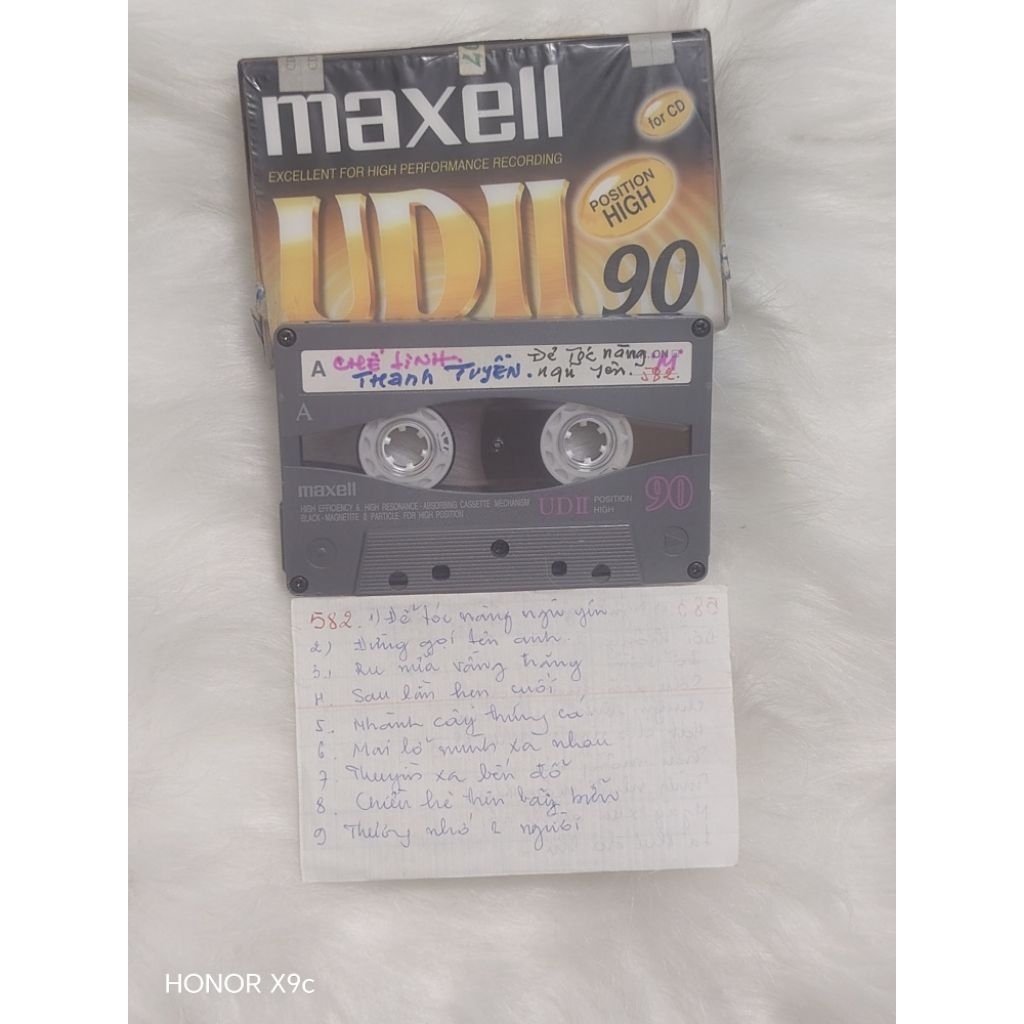 maxell
for CD
EXCELLENT FOR HIGH PERFORMANCE RECORDING
POSITION
HIGH
UDII
90
A CHẾ LINH. Để Tóc nàng M
THANH TUYỀN. ngủ yên. 582.
A
maxell
HIGH EFFICIENCY & HIGH RESONANCE-ABSORBING CASSETTE MECHANISM
BLACK-MAGNETITE PARTICLE FOR HIGH POSITION
UDII POSITION HIGH 90
582. 1) Để tóc nàng ngủ yên
2) Đừng gọi tên anh.
3. Ru nửa vầng trăng
4. Sau lần hẹn cuối
5. Nhành cây trứng cá.
6. Mai lở mình xa nhau
7. Thuyền xa bến đỗ
8. Chiều hè trên bãy biển
9 Thương nhớ 2 người
HONOR X9c